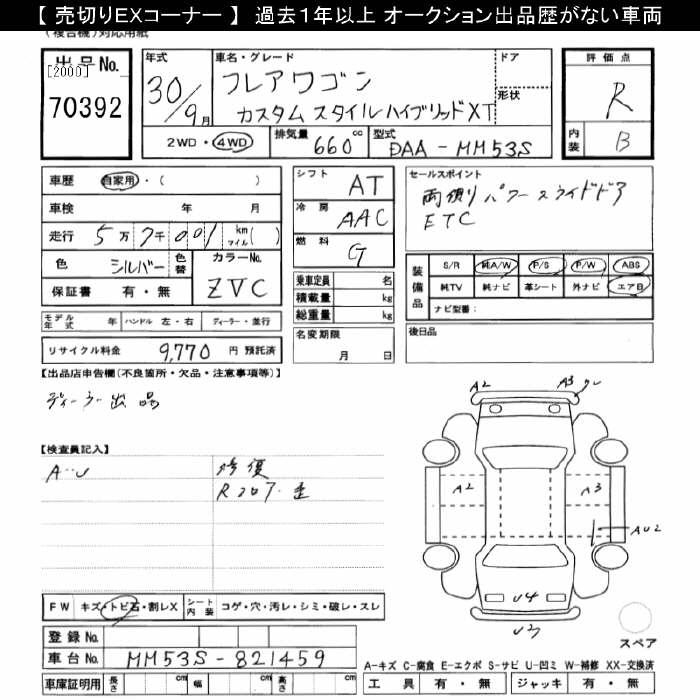 【 売切りEXコーナー 】 過去1年以上 オークション出品歴がない車両
(複合機)対応用紙
出品No. [2000] 70392
年式 30/9月
車名・グレード フレアワゴン カスタム スタイル ハイブリッドXT
ドア
形状
2WD・4WD 排気量 660cc 型式 DAA-MM53S
評価点 R
内装 B
車歴 自家用・( )
車検 年 月
走行 5万7千001 km マイル( )
色 シルバー 色替 カラーNo. ZVC
保証書 有・無
モデル年式 年 ハンドル 左・右 ディーラー・並行
リサイクル料金 9,770 円 預託済
シフト AT
冷房 AAC
燃料 G
乗車定員 名
積載量 kg
総重量 kg
名変期限 月 日
セールスポイント
両側り パワースライドドア
ETC
装備品 S/R 純A/W P/S P/W ABS
純TV 純ナビ 革シート 外ナビ エアB
ナビ型番:
後日品
【出品店申告欄(不良箇所・欠品・注意事項等)】
ディーラー出品
【検査員記入】
A・U 修復
R
FW キズ・トビ石・割レX シート内装 コゲ・穴・汚レ・シミ・破レ・スレ
登録No.
車台No. MM53S-821459
車庫証明用 長さ cm 幅 cm 高さ cm
A2 A3
A2 A3
AU2
U4
U3
スペア
A-キズ C-腐食 E-エクボ S-サビ U-凹ミ W-補修 XX-交換済
工具 有・無 ジャッキ 有・無